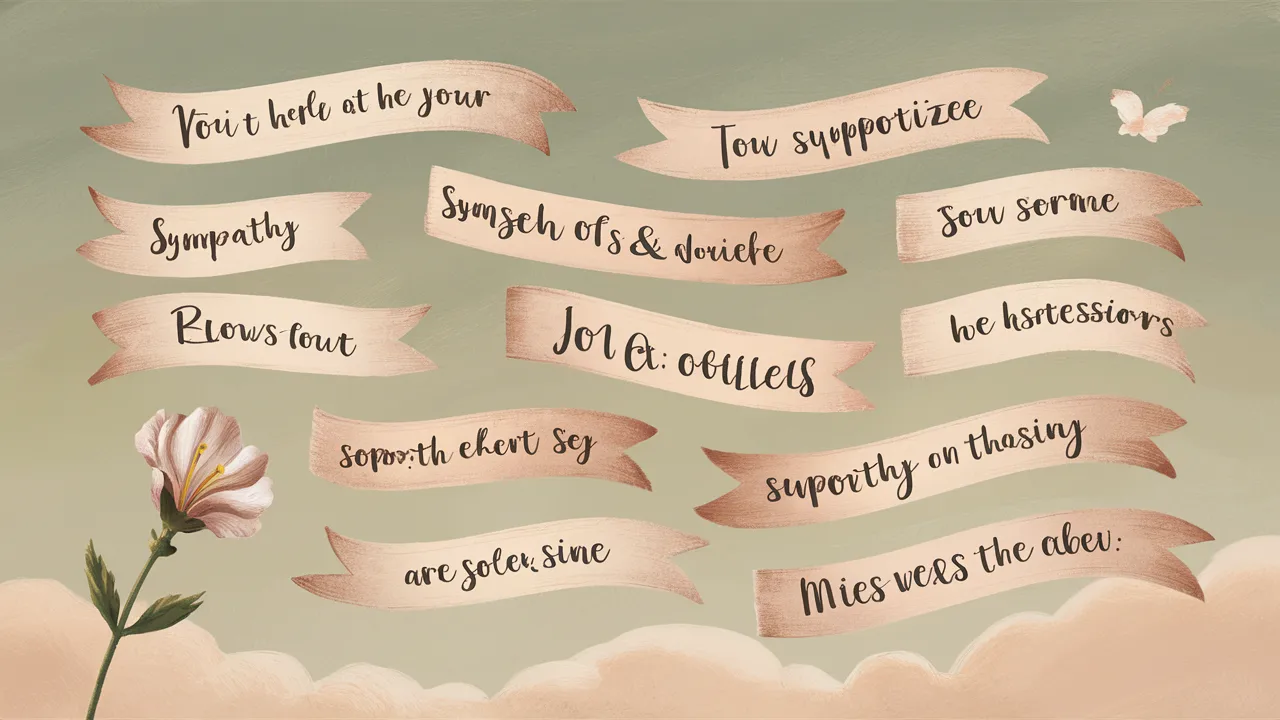 Voui t herle at he your
Tow syppotizee
Sympathy
Symseh ofs & doriefe
Sow sorme
Rlows-fout
Jol a: obllels
he hsrtessiovrs
soporth ehert sey
suporthy on thasing
are soler, sine
Mies vers the abev: